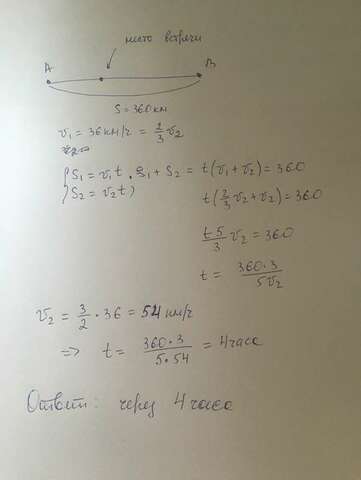 место встречи
A B
S = 360км
v₁ = 36 км/ч = 2/3 v₂
{ S₁ = v₁t, S₁ + S₂ = t(v₁ + v₂) = 360
S₂ = v₂t) t(2/3 v₂ + v₂) = 360
t·5/3 v₂ = 360
t = 360·3/5v₂
v₂ = 3/2 · 36 = 54 км/ч
=> t = 360·3/5·54 = 4 часа
Ответ: через 4 часа